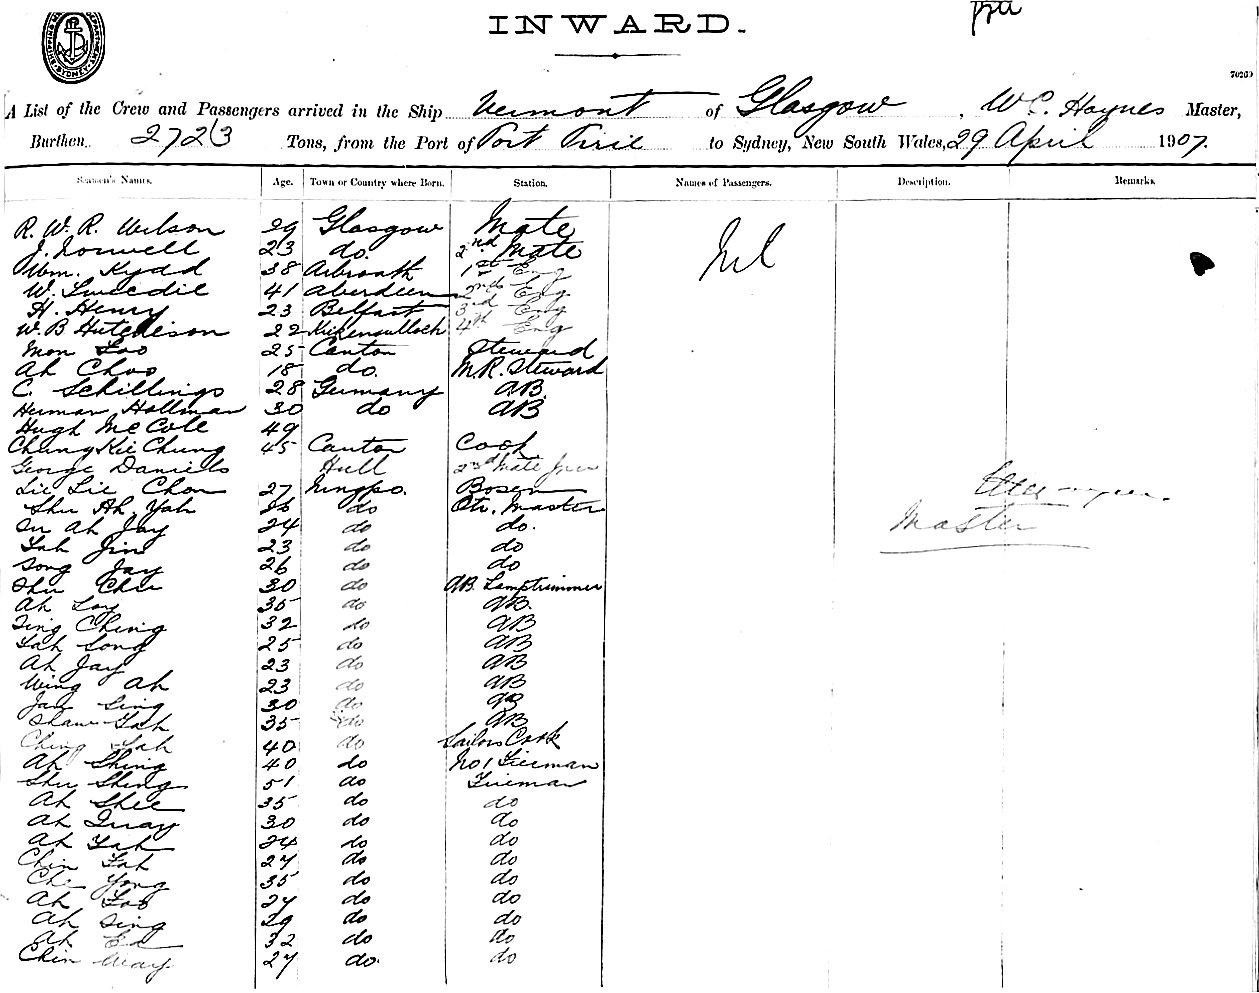 INWARD.
70269
A List of the Crew and Passengers arrived in the Ship Vermont of Glasgow, W.C. Haynes Master,
Burthen 2723 Tons, from the Port of Port Pirie to Sydney, New South Wales, 29 April 1907.
Seamen's Names. Age. Town or Country where Born. Station. Names of Passengers. Description. Remarks.
R. W. R. Wilson 29 Glasgow Mate
Nil
J. 23 do. 2nd Mate
Wm. Kydd 38 Arbroath 1st Eng
W. Tweedie 41 Aberdeen 2nd Eng
H. Henry 23 Belfast 3rd Eng
W. B Hutcheson 22 Kirkenculloch 4th Eng
Mon Foo 25 Canton Steward
Ah Choo 18 do. M.R. Steward
C. Schillings 28 Germany AB.
Herman Hollman 30 do AB
Hugh McCole 49
Chung Kie Chung 45 Canton Cook
George Daniels Hull 2nd Mate
Lie Lie Chon 27 Ningpo. Bosen
Shu Ah Yah 26 do Qtr. Master
Su Ah Jay 24 do do.
Yah Jin 23 do do
Song Jay 26 do do
Master
Shu Chu 30 do AB Lamptrimmer
Ah Loy 35 do AB.
Sing Ching 32 do AB
Yah Song 25 do AB
Ah Jay 23 do AB
Wing Ah 23 do AB
Jan Sing 30 do AB
Shaw Yah 35 do AB
Ching Yah 40 do Sailors Cook
Ah Shing 40 do No 1 Fireman
Shu Shing 51 do Fireman
Ah Shee 35 do do
Ah Quay 30 do do
Ah Yah 24 do do
Chin Yah 27 do do
Che Yong 35 do do
Ah Foo 27 do do
Ah Sing 29 do do
Ah Ed 32 do do
Chin Way 27 do. do